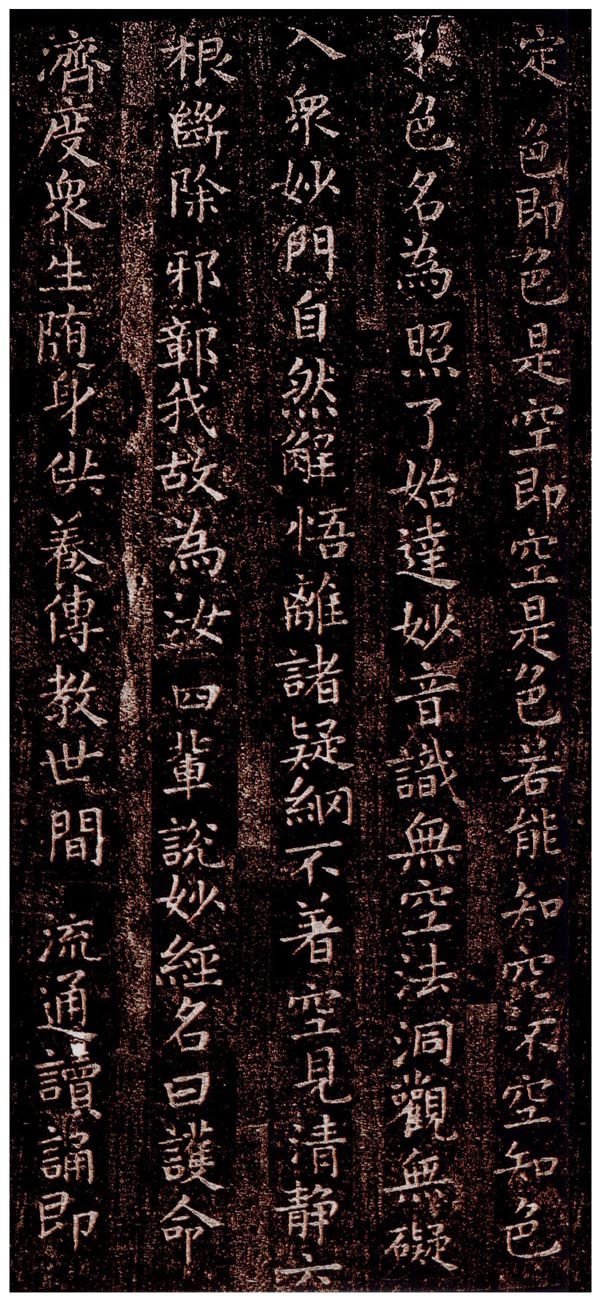 定色即色是空即空是色若能知空不空知色
不色名為照了始達妙音識無空法洞觀無礙
入眾妙門自然解悟離諸疑網不著空見清靜六
根斷除邪鄣我故為汝四輩說妙經名曰護命
濟度眾生随身供養傳教世間流通讀誦即